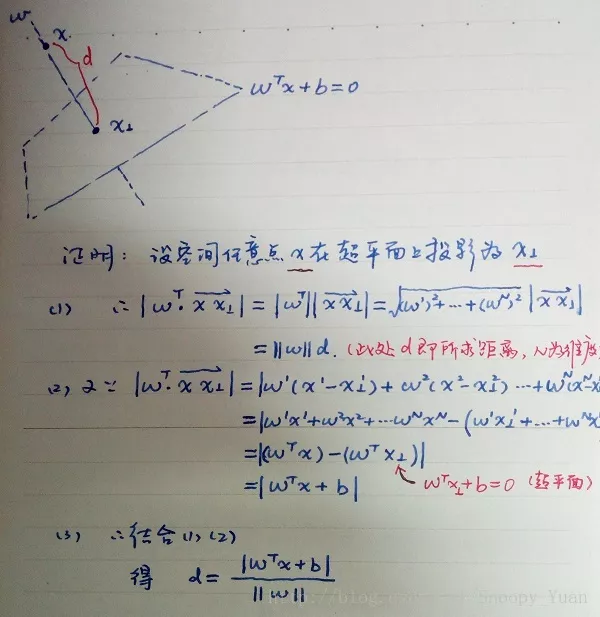 w
x
d
x⊥
wᵀx+b=0
证明: 设空间任意点x在超平面上投影为x⊥
(1) ∵ |wᵀ·xx⊥| = |wᵀ||xx⊥| = √(w¹)²+…+(wᴺ)² |xx⊥|
= ||w||d. (此处d即所求距离, N为维度
(2) 又∵ |wᵀ·xx⊥| = |w¹(x¹-x⊥¹)+w²(x²-x⊥²)…+wᴺ(xᴺ-x
= |w¹x¹+w²x²+…wᴺxᴺ-(w¹x⊥¹+…+wᴺx
= |(wᵀx)-(wᵀx⊥)|
= |wᵀx+b| wᵀx⊥+b=0 (超平面)
(3) ∴结合(1),(2)
得 d= |wᵀx+b| / ||w||
http://blog. noopy_Yuan